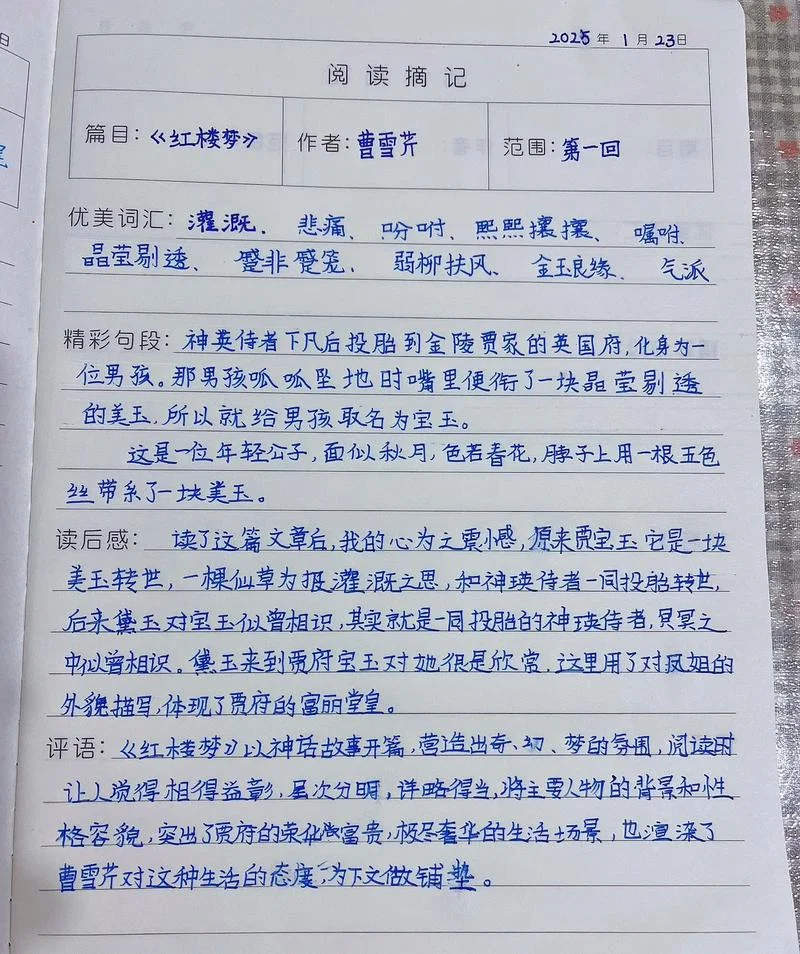 2025 年 1 月 23 日
阅读摘记
篇目：《红楼梦》 作者：曹雪芹 范围：第一回
优美词汇：灌溉、悲痛、吩咐、熙熙攘攘、嘱咐、
晶莹剔透、蹙非蹙笼、弱柳扶风、金玉良缘、气派
精彩句段：神英侍者下凡后投胎到金陵贾家的英国府，化身为一
位男孩。那男孩呱呱坠地时嘴里便衔了一块晶莹剔透
的美玉，所以就给男孩取名为宝玉。
这是一位年轻公子，面似秋月，色若春花，脖子上用一根五色
丝带系了一块美玉。
读后感：读了这篇文章后，我的心为之震憾，原来贾宝玉它是一块
美玉转世，一棵仙草为报灌溉之恩，和神瑛侍者一同投胎转世，
后来黛玉对宝玉似曾相识，其实就是一同投胎的神瑛侍者，冥冥之
中似曾相识。黛玉来到贾府宝玉对她很是欣常，这里用了对凤姐的
外貌描写，体现了贾府的富丽堂皇。
评语：《红楼梦》以神话故事开篇，营造出奇、幻、梦的氛围，阅读时
让人觉得相得益彰，层次分明，详略得当，将主要人物的背景和性
格容貌，突出了贾府的荣华富贵，极尽奢华的生活场景，也渲染了
曹雪芹对这种生活的态度，为下文做铺垫。